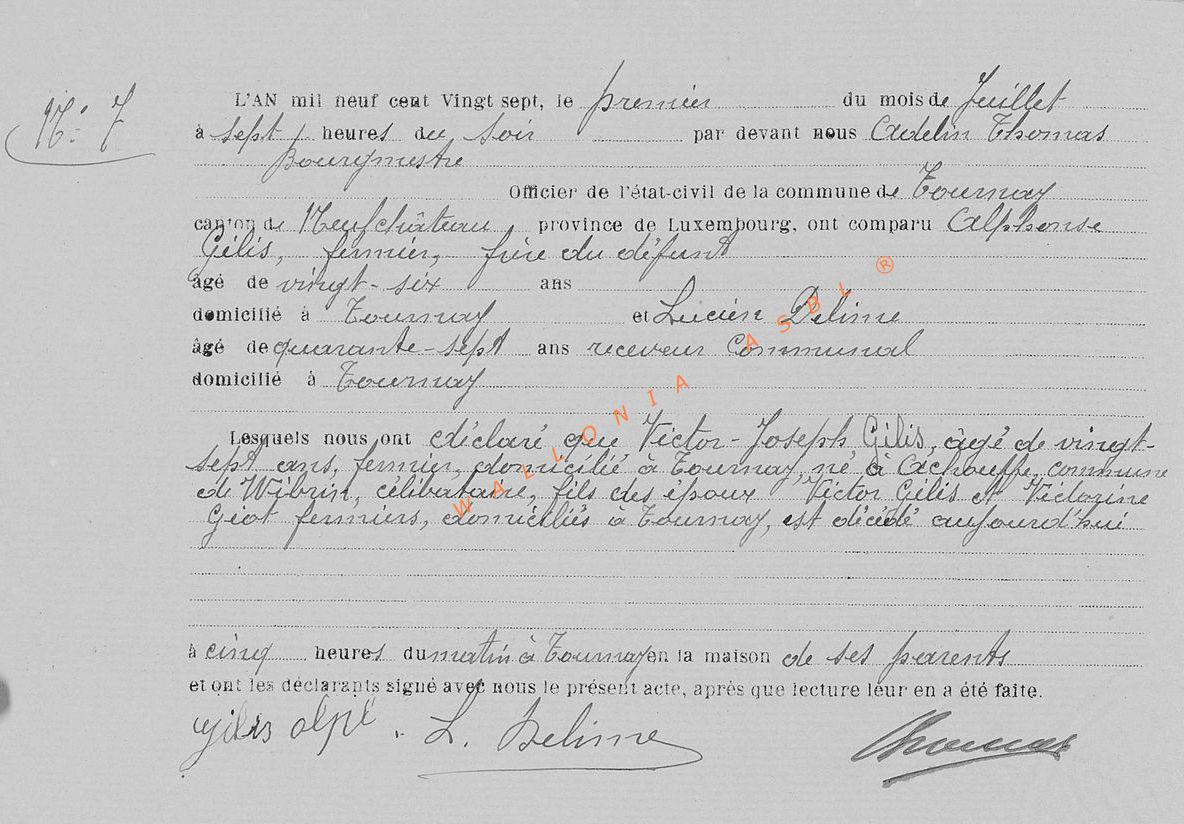 N° 7
L'AN mil neuf cent Vingt sept, le premier du mois de Juillet
à sept heures du soir par devant nous Adelin Thomas
Bourgmestre
Officier de l'état-civil de la commune de Tournay
canton de Neufchâteau province de Luxembourg, ont comparu Alphonse
Gilis, fermier, frère du défunt
âgé de vingt-six ans
domicilié à Tournay et Lucien Delime
âgé de quarante-sept ans receveur Communal
domicilié à Tournay
Lesquels nous ont déclaré que Victor-Joseph Gilis, âgé de vingt-
sept ans, fermier, domicilié à Tournay, né à Achouffe, commune
de Wibrin, célibataire, fils des époux Victor Gilis et Victorine
Giot fermiers, domiciliés à Tournay, est décédé aujourd'hui
à cinq heures du matin à Tournay en la maison de ses parents
et ont les déclarants signé avec nous le présent acte, après que lecture leur en a été faite.
Gilis Alph. L. Delime Thomas
WALLONIA ASBL ®